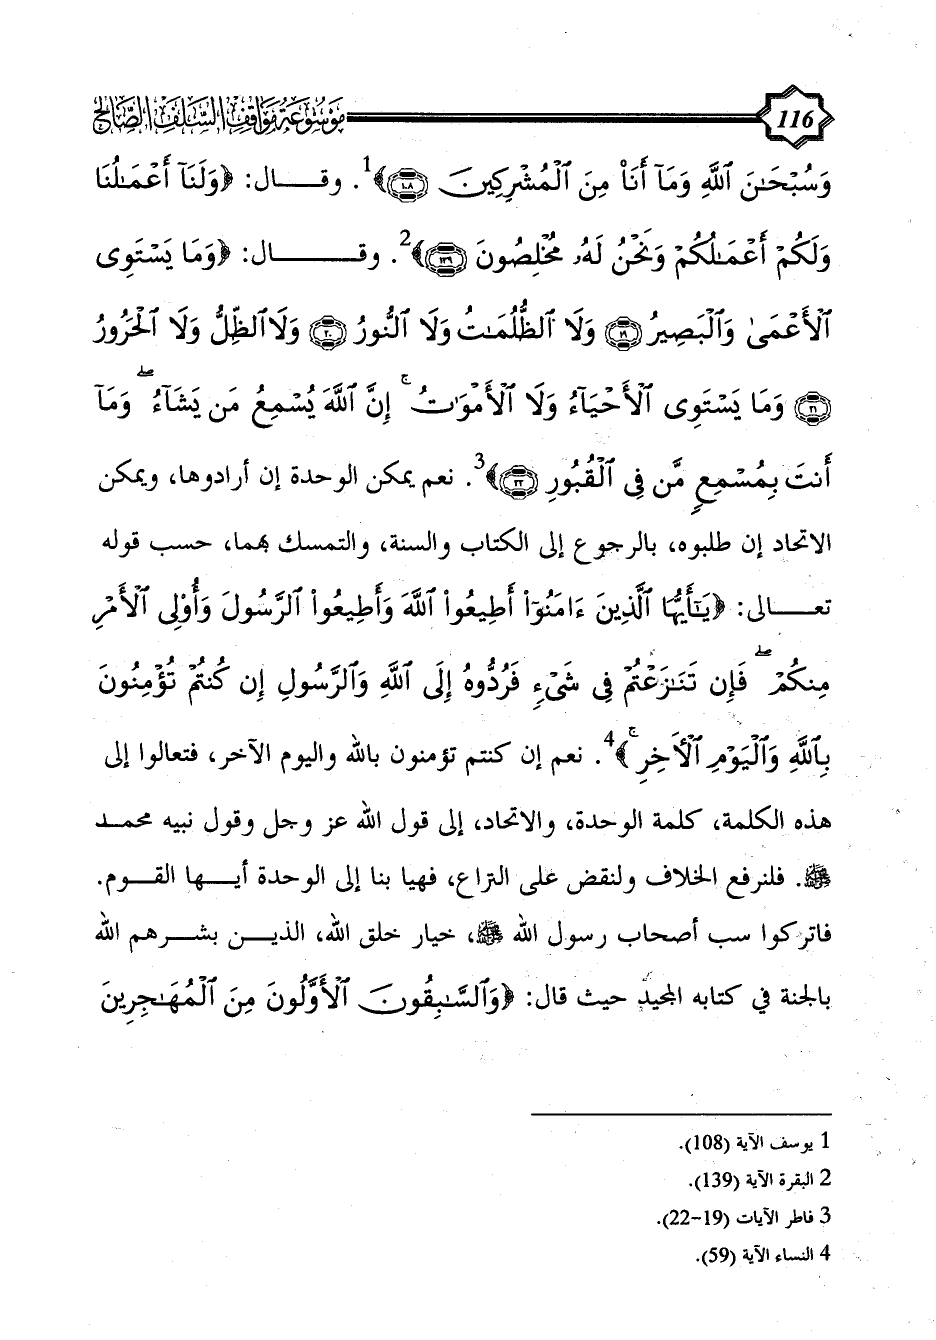 116 موسوعة مواقف السلف الصالح
وَسُبْحَٰنَ ٱللَّهِ وَمَآ أَنَا۠ مِنَ ٱلْمُشْرِكِينَ ۝١٠٨﴾1. وقــال: ﴿وَلَنَآ أَعْمَٰلُنَا
وَلَكُمْ أَعْمَٰلُكُمْ وَنَحْنُ لَهُۥ مُخْلِصُونَ ۝١٣٩﴾2. وقــــال: ﴿وَمَا يَسْتَوِى
ٱلْأَعْمَىٰ وَٱلْبَصِيرُ ۝١٩ وَلَا ٱلظُّلُمَٰتُ وَلَا ٱلنُّورُ ۝٢٠ وَلَا ٱلظِّلُّ وَلَا ٱلْحَرُورُ
۝٢١ وَمَا يَسْتَوِى ٱلْأَحْيَآءُ وَلَا ٱلْأَمْوَٰتُ ۚ إِنَّ ٱللَّهَ يُسْمِعُ مَن يَشَآءُ ۖ وَمَآ
أَنتَ بِمُسْمِعٍ مَّن فِى ٱلْقُبُورِ ۝٢٢﴾3. نعم يمكن الوحدة إن أرادوها، ويمكن
الاتحاد إن طلبوه، بالرجوع إلى الكتاب والسنة، والتمسك بهما، حسب قوله
تعــالى: ﴿يَٰٓأَيُّهَا ٱلَّذِينَ ءَامَنُوٓا۟ أَطِيعُوا۟ ٱللَّهَ وَأَطِيعُوا۟ ٱلرَّسُولَ وَأُو۟لِى ٱلْأَمْرِ
مِنكُمْ ۖ فَإِن تَنَٰزَعْتُمْ فِى شَىْءٍ فَرُدُّوهُ إِلَى ٱللَّهِ وَٱلرَّسُولِ إِن كُنتُمْ تُؤْمِنُونَ
بِٱللَّهِ وَٱلْيَوْمِ ٱلْأَخِرِ ۚ﴾4. نعم إن كنتم تؤمنون بالله واليوم الآخر، فتعالوا إلى
هذه الكلمة، كلمة الوحدة، والاتحاد، إلى قول الله عز وجل وقول نبيه محمــد
ﷺ. فلنرفع الخلاف ولنقض على النزاع، فهيا بنا إلى الوحدة أيــها القــوم.
فاتركوا سب أصحاب رسول الله ﷺ، خيار خلق الله، الذيــن بشــرهم الله
بالجنة في كتابه المجيد حيث قال: ﴿وَٱلسَّٰبِقُونَ ٱلْأَوَّلُونَ مِنَ ٱلْمُهَٰجِرِينَ
1 يوسف الآية (108).
2 البقرة الآية (139).
3 فاطر الآيات (19-22).
4 النساء الآية (59).